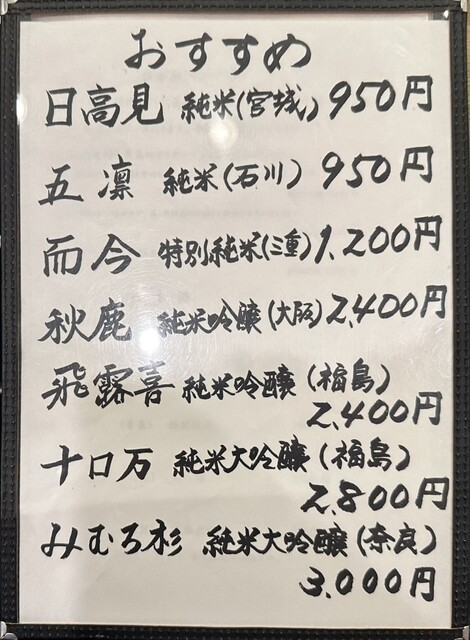 おすすめ
日高見 純米(宮城) 950円
五凛 純米(石川) 950円
而今 特別純米(三重) 1,200円
秋鹿 純米吟醸(大阪) 2,400円
飛露喜 純米吟醸(福島)
2,400円
十口万 純米大吟醸(福島)
2,800円
みむろ杉 純米大吟醸(奈良)
3,000円